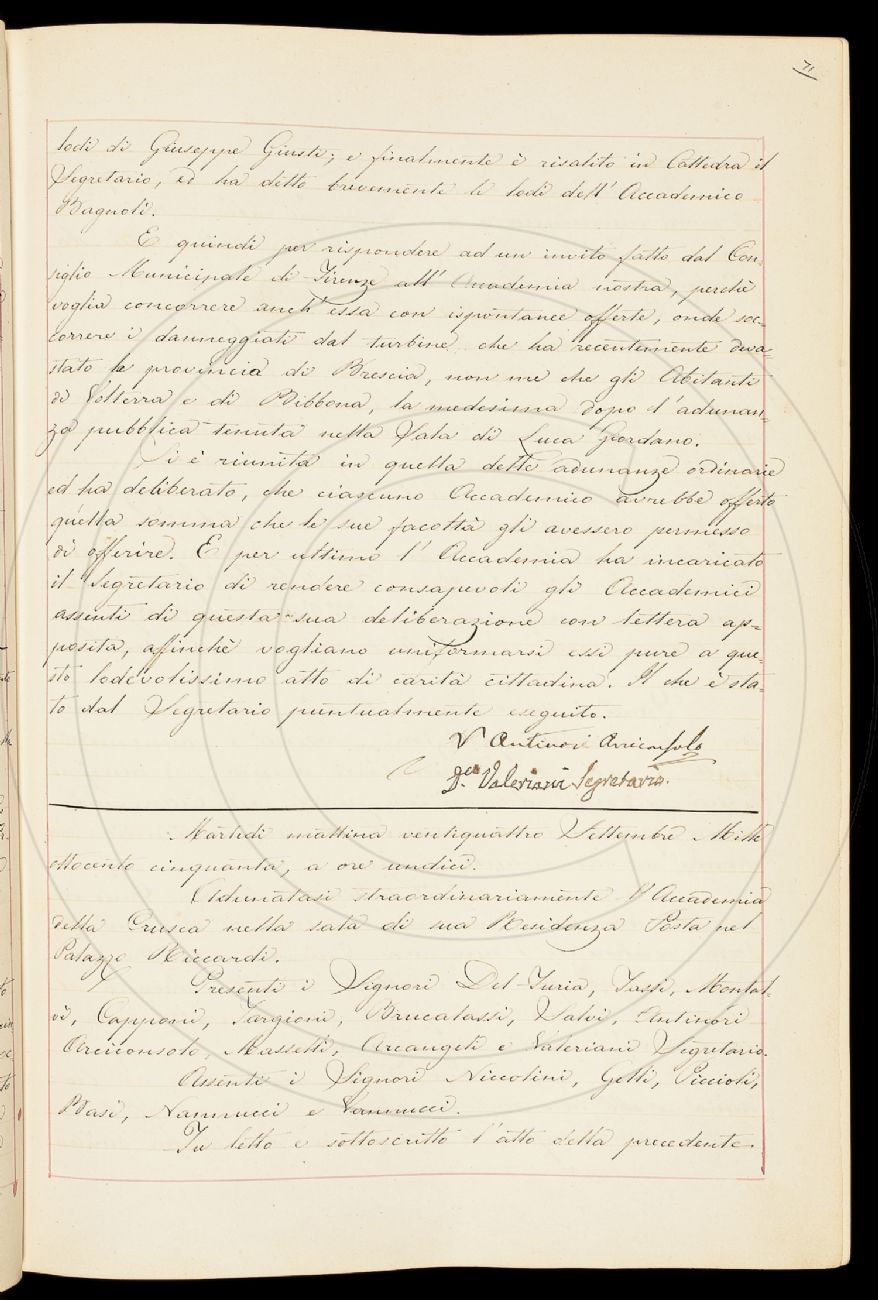 71
lodi di Giuseppe Giusti; e finalmente è risalito in Cattedra il
Segretario, ed ha detto brevemente le lodi dell' Accademico
Bagnoli.
E quindi per rispondere ad un invito fatto dal Con-
siglio Municipale di Firenze all' Accademia nostra, perchè
voglia concorrere anch' essa con ispontanee offerte, onde soc-
correre i danneggiati dal turbine che ha recentemente deva-
stato la provincia di Brescia, non me che gli Abitanti
di Volterra e di Bibbona, la medesima dopo l' adunan-
za pubblica tenuta nella Sala di Luca Giordano.
Si è riunita in quella delle adunanze ordinarie
ed ha deliberato, che ciascuno Accademico avrebbe offerto
quella somma che le sue facoltà gli avessero permesso
di offerire. E per ultimo l' Accademia ha incaricato
il Segretario di rendere consapevoli gli Accademici
assenti di questa sua deliberazione con lettera ap-
posita, affinchè vogliano uniformarsi essi pure a que-
sto lodevolissimo atto di carità cittadina. Il che è sta-
to dal Segretario puntualmente eseguito.
V Antinori Arciconsolo
Valeriani Segretario.
Martedi mattina ventiquattro Settembre Mille
ottocento cinquanta, a ore undici.
Adunatasi straordinariamente l' Accademia
della Crusca nella sala di sua Residenza Posta nel
Palazzo Riccardi.
Presenti i Signori Del-Furia, Tassi, Montal-
vi, Capponi, Targioni, Brucalassi, Salvi, Antinori
Arciconsolo, Masselli, Arcangeli e Valeriani Segretario.
Assenti i Signori Niccolini, Gelli, Piccioli,
Basi, Nannucci e Vannucci.
Fu letto e sottoscritto l' atto della precedente